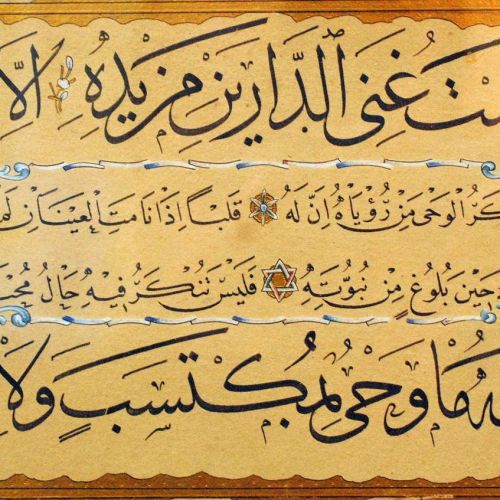 ـت غِنَى الدَّارَيْنِ مِنْ يَدِهِ اِلَّا
ـكِرُ الْوَحْىَ مِنْ رُؤْيَاهُ اِنَّ لَهُ قَلْبًا اِذَا نَامَتِ الْعَيْنَانِ لَمْ
حِينَ بُلُوغٍ مِنْ نُبُوَّتِهِ فَلَيْسَ تُنْكَرُ فِيهِ حَالُ مُحْتَـ
ـهُ مَا وَحْىٌ بِمُكْتَسَبٍ وَلَا